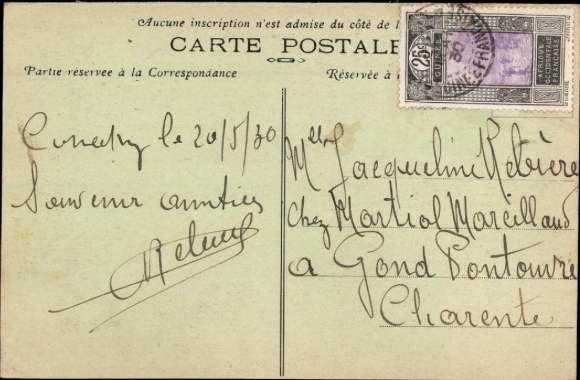 Aucune inscription n'est admise du côté de l
CARTE POSTALE
Partie réservée à la Correspondance
Réservée à
25c
GUINÉE
AFRIQUE
OCCIDENTALE
FRANÇAISE
30
Conakry le 20/5/30
Souvenir amitiés
Mlle Jacqueline Rebière
chez Martial Mareillaud
a Gond Pontouvre
Charente